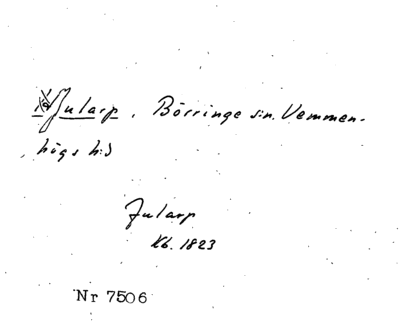 Jularp, Börringe s:n. Vemmen-
högs h:d
Jularp
Kb. 1823
Nr 7506